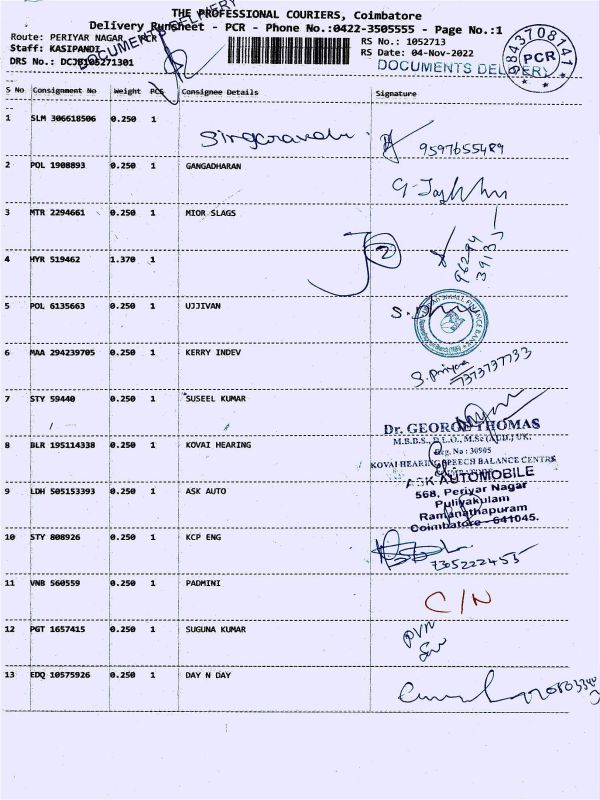 THE PROFESSIONAL COURIERS, Coimbatore
Delivery Runsheet - PCR - Phone No.:0422-3505555 - Page No.:1
Route: PERIYAR NAGAR, PCR
Staff: KASIPANDI
DRS No.: DCJB105271301
RS No.: 1052713
RS Date: 04-Nov-2022
DOCUMENTS DELIVERY
DOCUMENTS DELIVERY
9843708141
PCR
S No Consignment No Weight PCS Consignee Details Signature
1 SLM 306618506 0.250 1
9597655489
2 POL 1908893 0.250 1 GANGADHARAN
3 MTR 2294661 0.250 1 MIOR SLAGS
4 HYR 519462 1.370 1
2
96294
39133
5 POL 6135663 0.250 1 UJJIVAN
SMALL FINANCE BANK
6 MAA 294239705 0.250 1 KERRY INDEV
S. Priyaa
7373737733
7 STY 59440 0.250 1 SUSEEL KUMAR
Dr. GEORGE THOMAS
M.B.B.S., D.L.O., M.Sc (AUD.) UK.
Reg. No : 30905
8 BLR 195114338 0.250 1 KOVAI HEARING
KOVAI HEARING SPEECH BALANCE CENTRE
9 LDH 505153393 0.250 1 ASK AUTO
ASK AUTOMOBILE
568, Periyar Nagar
Puliyakulam
Ramanathapuram
Coimbatore - 641045.
10 STY 808926 0.250 1 KCP ENG
7305222455
11 VNB 560559 0.250 1 PADMINI
C/N
12 PGT 1657415 0.250 1 SUGUNA KUMAR
13 EDQ 10575926 0.250 1 DAY N DAY